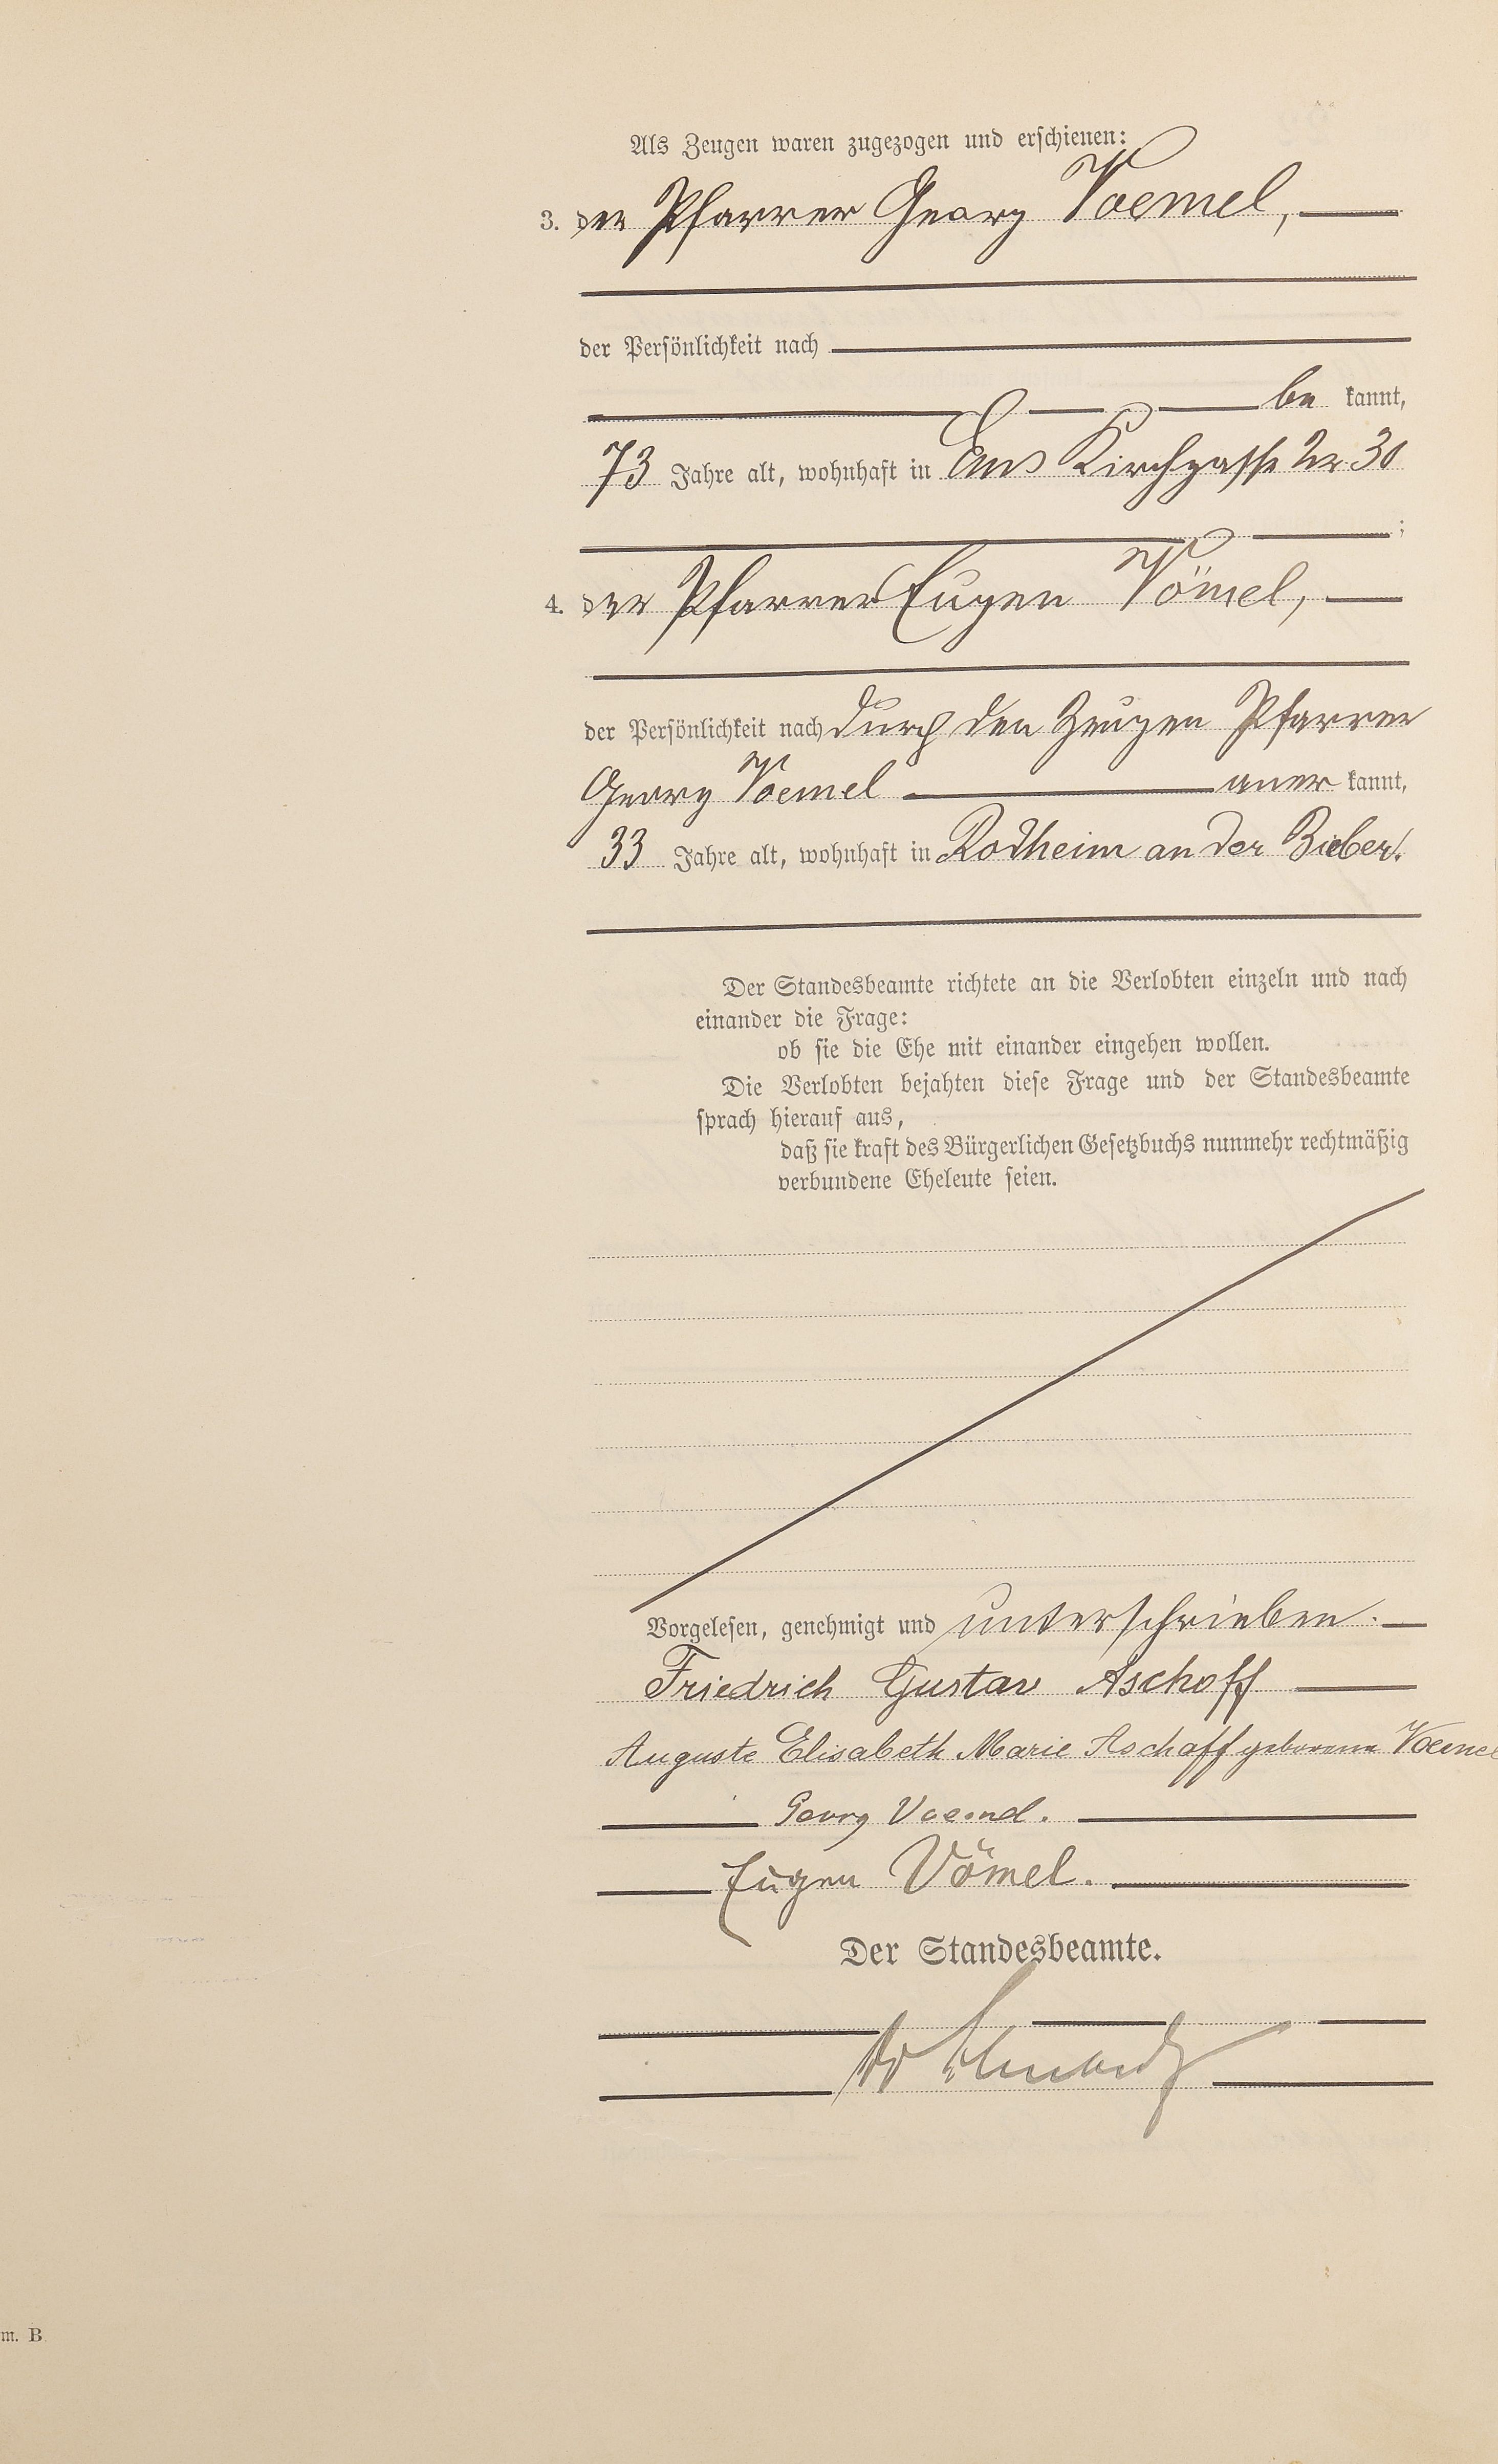 Als Zeugen waren zugezogen und erschienen:
3. der Pfarrer Georg Voemel,
der Persönlichkeit nach
be kannt,
73 Jahre alt, wohnhaft in Ems Kirchgasse Nr 30
;
4. der Pfarrer Eugen Vömel,
der Persönlichkeit nach durch den Zeugen Pfarrer
Georg Voemel aner kannt,
33 Jahre alt, wohnhaft in Rodheim an der Bieber.
Der Standesbeamte richtete an die Verlobten einzeln und nach
einander die Frage:
ob sie die Ehe mit einander eingehen wollen.
Die Verlobten bejahten diese Frage und der Standesbeamte
sprach hierauf aus,
daß sie kraft des Bürgerlichen Gesetzbuchs nunmehr rechtmäßig
verbundene Eheleute seien.
Vorgelesen, genehmigt und unterschrieben.
Friedrich Gustav Aschoff
Auguste Elisabeth Marie Aschoff geborene Voemel
Georg Voemel.
Eugen Vömel.
Der Standesbeamte.
m. B